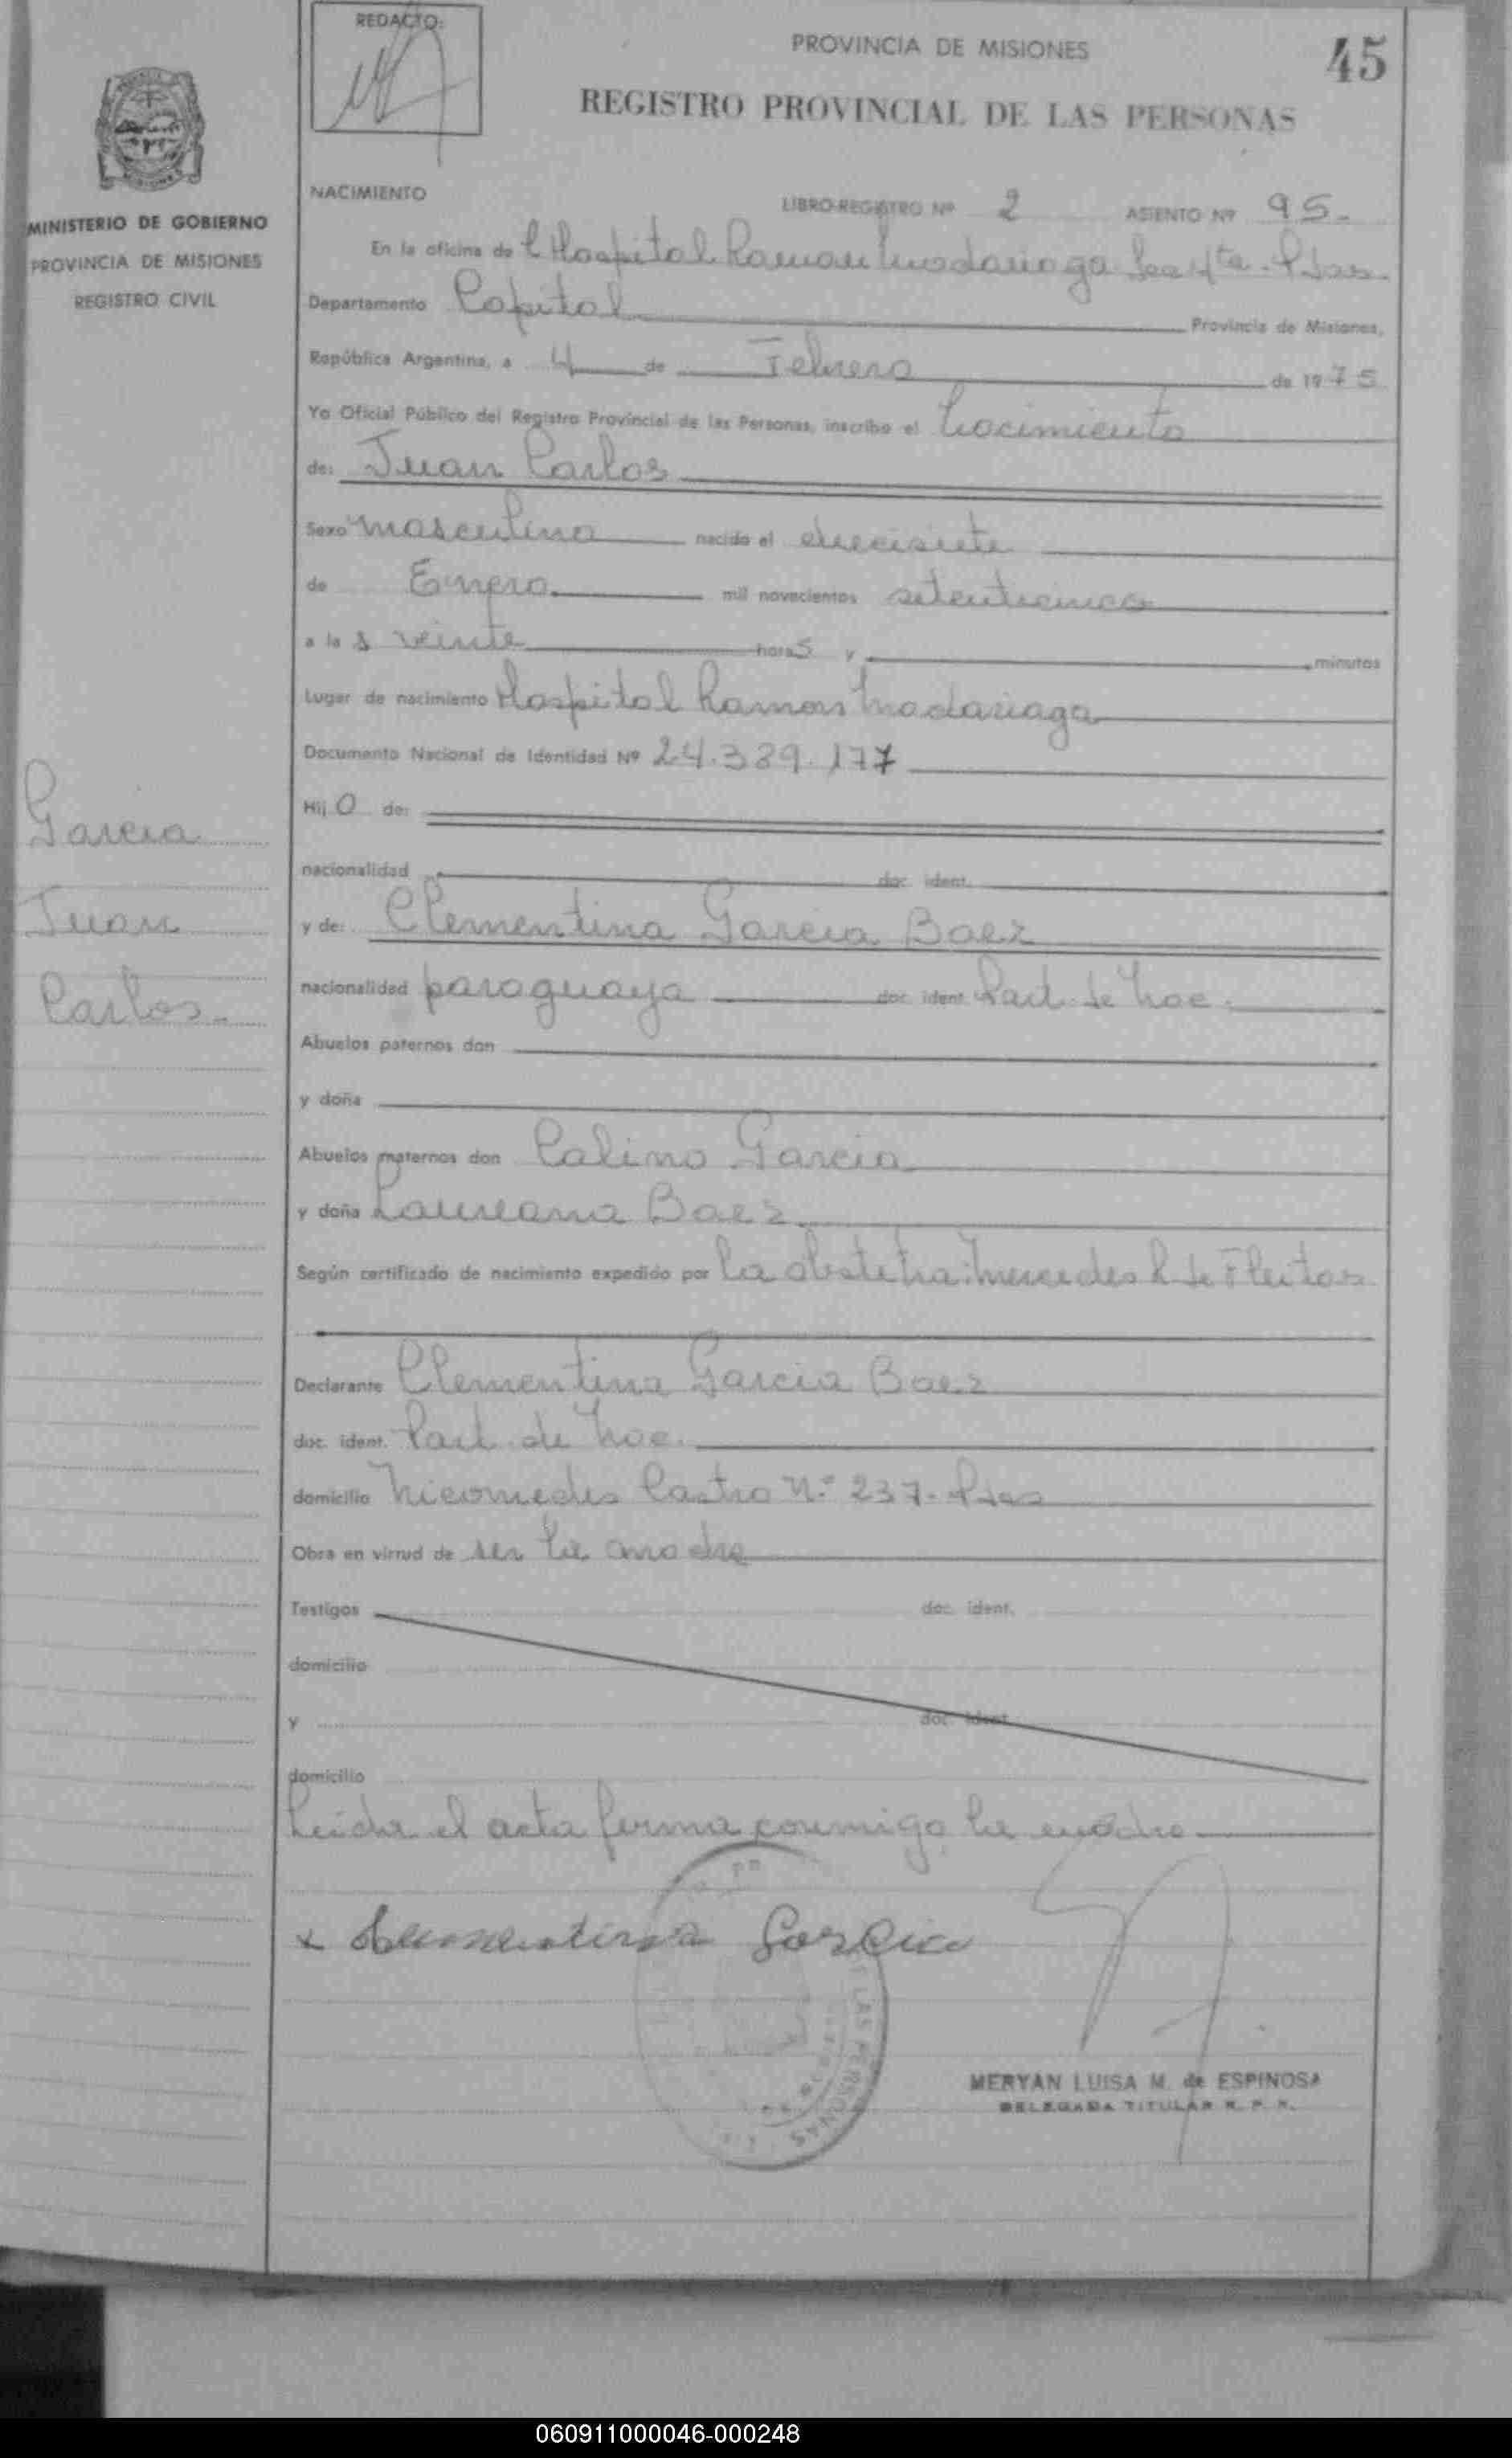 REDACTO:
PROVINCIA DE MISIONES
45
REGISTRO PROVINCIAL DE LAS PERSONAS
MINISTERIO DE GOBIERNO
PROVINCIA DE MISIONES
REGISTRO CIVIL
NACIMIENTO LIBRO-REGISTRO Nº 2 ASIENTO Nº 95.
En la oficina de l Hospital Ramon Madariaga Sec 4ta. Pdas.
Departamento Capital Provincia de Misiones,
República Argentina, a 4 de Febrero de 1975
Yo Oficial Público del Registro Provincial de las Personas, inscribo el Nacimiento
de: Juan Carlos
Sexo masculino nacido el diecisiete
de Enero mil novecientos setenticinco
a las veinte horas y minutos
Lugar de nacimiento Hospital Ramon Madariaga
Documento Nacional de Identidad Nº 24.389.177
Hijo de:
Garcia
Juan
Carlos.
nacionalidad doc. ident.
y de: Clementina Garcia Baez
nacionalidad paraguaya doc. ident. Part. de Nac.
Abuelos paternos don
y doña
Abuelos maternos don Calino Garcia
y doña Laureana Baez
Según certificado de nacimiento expedido por la obstetra: Mercedes R de Fleitas
Declarante Clementina Garcia Baez
doc. ident. Part. de Nac.
domicilio Nicomedes Castro N.º 237. Pdas
Obra en virtud de ser la madre
Testigos doc. ident.
domicilio
y doc. ident.
domicilio
Leida el acta firma conmigo la madre
x Clementina Garcia
LAS PERSONAS
MERYAN LUISA M. de ESPINOSA
DELEGADA TITULAR R. P. P.
060911000046-000248